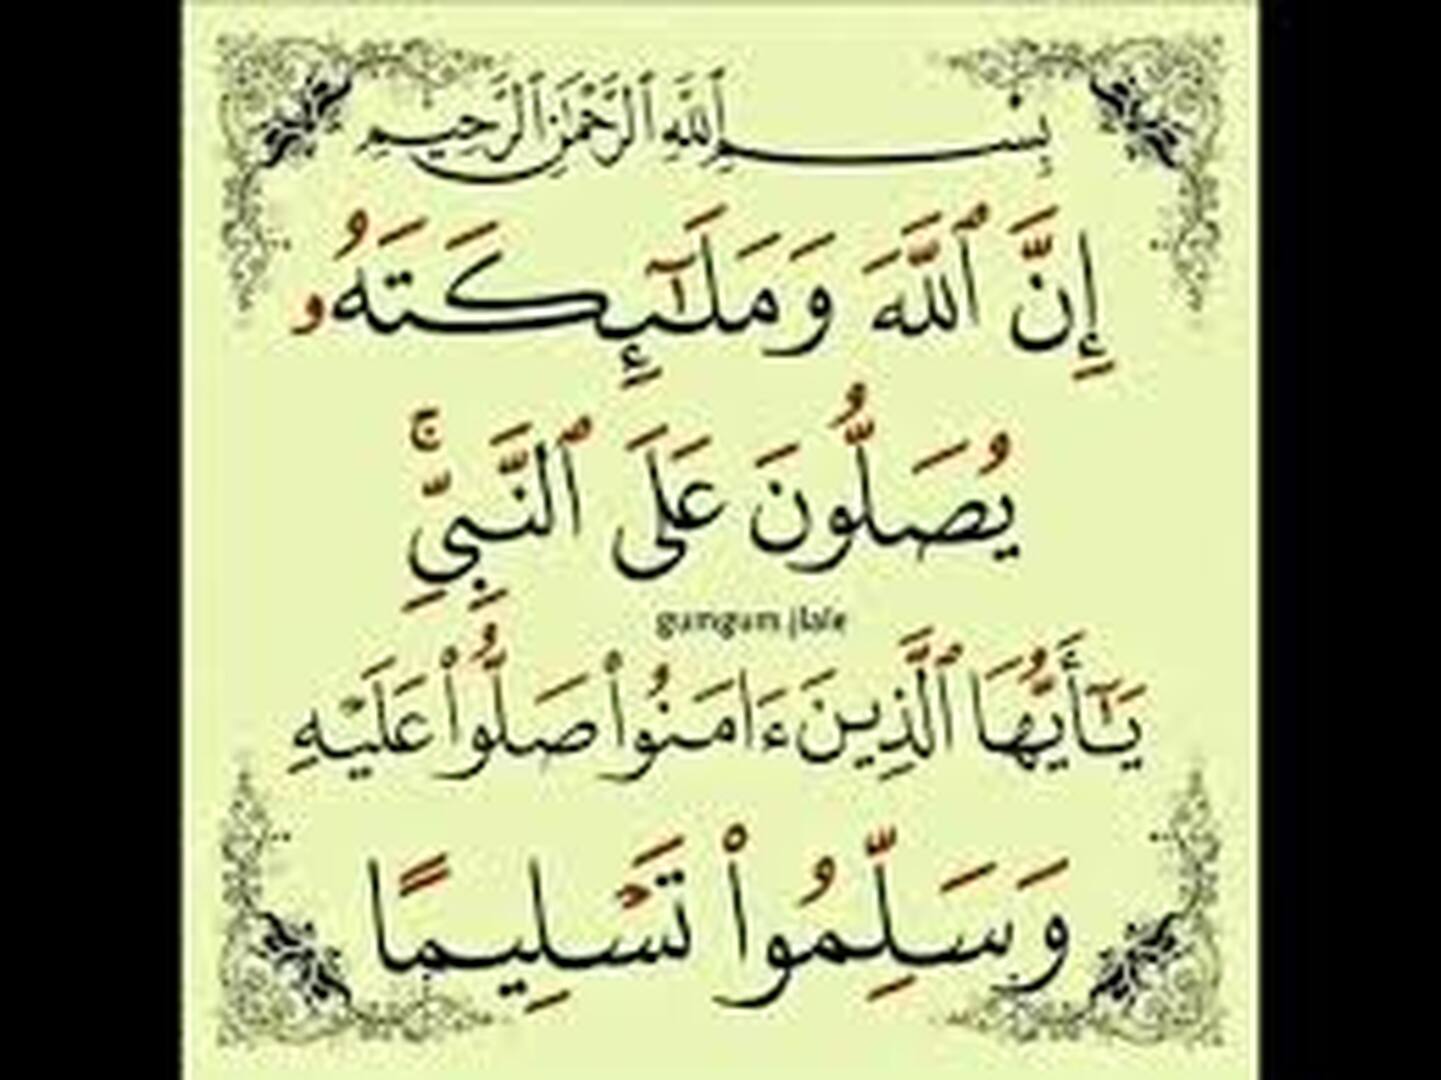 بِسْمِ ٱللَّهِ ٱلرَّحْمَٰنِ ٱلرَّحِيمِ
إِنَّ ٱللَّهَ وَمَلَٰٓئِكَتَهُۥ
يُصَلُّونَ عَلَى ٱلنَّبِىِّۚ
gumgum jlale
يَٰٓأَيُّهَا ٱلَّذِينَ ءَامَنُوا۟ صَلُّوا۟ عَلَيْهِ
وَسَلِّمُوا۟ تَسْلِيمًا